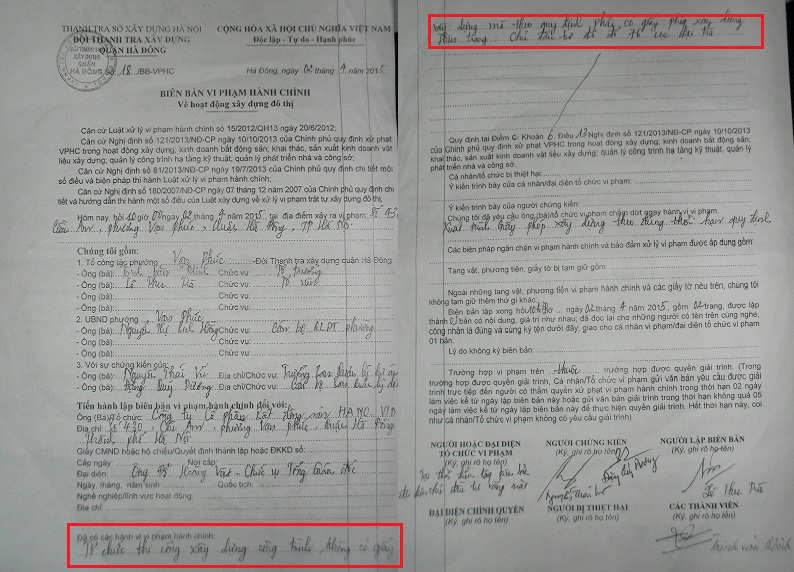 THANH TRA SỞ XÂY DỰNG HÀ NỘI
ĐỘI THANH TRA XÂY DỰNG
QUẬN HÀ ĐÔNG
Số 18 /BB-VPHC
CỘNG HÒA XÃ HỘI CHỦ NGHĨA VIỆT NAM
Độc lập - Tự do - Hạnh phúc
Hà Đông, ngày 02 tháng 4 năm 2015
BIÊN BẢN VI PHẠM HÀNH CHÍNH
Về hoạt động xây dựng đô thị
Căn cứ Luật xử lý vi phạm hành chính số 15/2012/QH13 ngày 20/6/2012;
Căn cứ Nghị định số 121/2013/NĐ-CP ngày 10/10/2013 của Chính phủ quy định xử phạt
VPHC trong hoạt động xây dựng; kinh doanh bất động sản; khai thác, sản xuất kinh doanh vật
liệu xây dựng; quản lý công trình hạ tầng kỹ thuật, quản lý phát triển nhà và công sở;
Căn cứ Nghị định số 81/2013/NĐ-CP ngày 19/7/2013 của Chính phủ quy định chi tiết một
số điều và biện pháp thi hành Luật xử lý vi phạm hành chính;
Căn cứ Nghị định số 180/2007/NĐ-CP ngày 07 tháng 12 năm 2007 của Chính phủ quy định chi
tiết và hướng dẫn thi hành một số điều của Luật xây dựng về xử lý vi phạm trật tự xây dựng đô thị,
Hôm nay, hồi 10 giờ 00 ngày 02 tháng 4 năm 2015, tại địa điểm xảy ra vi phạm: số 430
Cầu Am, phường Vạn Phúc, Quận Hà Đông, TP Hà Nội
Chúng tôi gồm:
1. Tổ công tác phường Vạn Phúc - Đội Thanh tra xây dựng quận Hà Đông
- Ông (bà): Trịnh Văn Minh Chức vụ: Tổ trưởng
- Ông (bà): Lê Thu Trà Chức vụ: Tổ viên
- Ông (bà): Chức vụ:
2. UBND phường Vạn Phúc
- Ông (bà): Nguyễn Thị Hồng Chức vụ: Cán bộ phường
- Ông (bà): Chức vụ:
3. Với sự chứng kiến của:
- Ông (bà): Nguyễn Thái Vũ Địa chỉ/Chức vụ: Trưởng ban Quản lý
- Ông (bà): Đặng Quý Dương Địa chỉ/Chức vụ: Cán bộ ban Quản lý
Tiến hành lập biên bản vi phạm hành chính đối với:
Ông (Bà)/Tổ chức: Công ty Cổ phần bất động sản HANO-VID
Địa chỉ: Số 430, Cầu Am, phường Vạn Phúc, quận Hà Đông
thành phố Hà Nội
Giấy CMND hoặc hộ chiếu/Quyết định thành lập hoặc ĐKKD số:
Cấp ngày: Nơi cấp:
Đại diện: Ông Hoàng Việt - Chức vụ Tổng Giám đốc
Ngày, tháng, năm sinh Quốc tịch:
Nghề nghiệp/lĩnh vực hoạt động:
Địa chỉ:
Đã có các hành vi vi phạm hành chính:
Tổ chức thi công xây dựng công trình không có giấy
xây dựng mà theo quy định phải có giấy phép xây dựng
Hiện trạng: Chủ đầu tư đã cọc
Quy định tại Điểm C; Khoản 6. Điều 13 Nghị định số 121/2013/NĐ-CP ngày 10/10/2013
của Chính phủ quy định xử phạt VPHC trong hoạt động xây dựng; kinh doanh bất động sản;
khai thác, sản xuất kinh doanh vật liệu xây dựng; quản lý công trình hạ tầng kỹ thuật, quản lý
phát triển nhà và công sở.
Cá nhân/tổ chức bị thiệt hại:
Ý kiến trình bày của cá nhân/đại diện tổ chức vi phạm:
Ý kiến trình bày của người chứng kiến:
Chúng tôi đã yêu cầu ông (bà)/tổ chức vi phạm chấm dứt ngay hành vi vi phạm.
Xuất trình Giấy phép xây dựng theo đúng thời hạn quy định
Các biện pháp ngăn chặn vi phạm hành chính và bảo đảm xử lý vi phạm được áp dụng gồm:
Tang vật, phương tiện, giấy tờ bị tạm giữ gồm:
Ngoài những tang vật, phương tiện vi phạm hành chính và các giấy tờ nêu trên, chúng tôi
không tạm giữ thêm thứ gì khác.
Biên bản lập xong hồi 10h30 ngày 02 tháng 4 năm 2015. gồm 02 trang, được lập
thành 03 bản có nội dung, giá trị như nhau; đã đọc lại cho những người có tên trên cùng nghe,
công nhận là đúng và cùng ký tên dưới đây, giao cho cá nhân vi phạm/đại diện tổ chức vi phạm
01 bản.
Lý do không ký biên bản:
Trường hợp vi phạm trên thuộc trường hợp được quyền giải trình. (Trong
trường hợp được quyền giải trình, Cá nhân/Tổ chức vi phạm gửi văn bản yêu cầu được giải
trình trực tiếp đến người có thẩm quyền xử phạt vi phạm hành chính trong thời hạn 02 ngày
làm việc kể từ ngày lập biên bản này hoặc gửi văn bản giải trình trong thời hạn không quá 05
ngày làm việc kể từ ngày lập biên bản để thực hiện quyền giải trình. Hết thời hạn này, coi
như cá nhân/Tổ chức vi phạm không có yêu cầu giải trình)
NGƯỜI HOẶC ĐẠI DIỆN
TỔ CHỨC VI PHẠM
(Ký, ghi rõ họ tên)
Tại thời điểm lập biên bản
đại diện chủ đầu tư vắng mặt
NGƯỜI CHỨNG KIẾN
(Ký, ghi rõ họ tên)
Nguyễn Thái Vũ
Đặng Quý Dương
NGƯỜI LẬP BIÊN BẢN
(Ký, ghi rõ họ tên)
Lê Thu Trà
ĐẠI DIỆN CHÍNH QUYỀN
(Ký, ghi rõ họ tên)
NGƯỜI BỊ THIỆT HẠI
(Ký, ghi rõ họ tên)
CÁC THÀNH VIÊN
(Ký, ghi rõ họ tên)
Trịnh Văn Minh